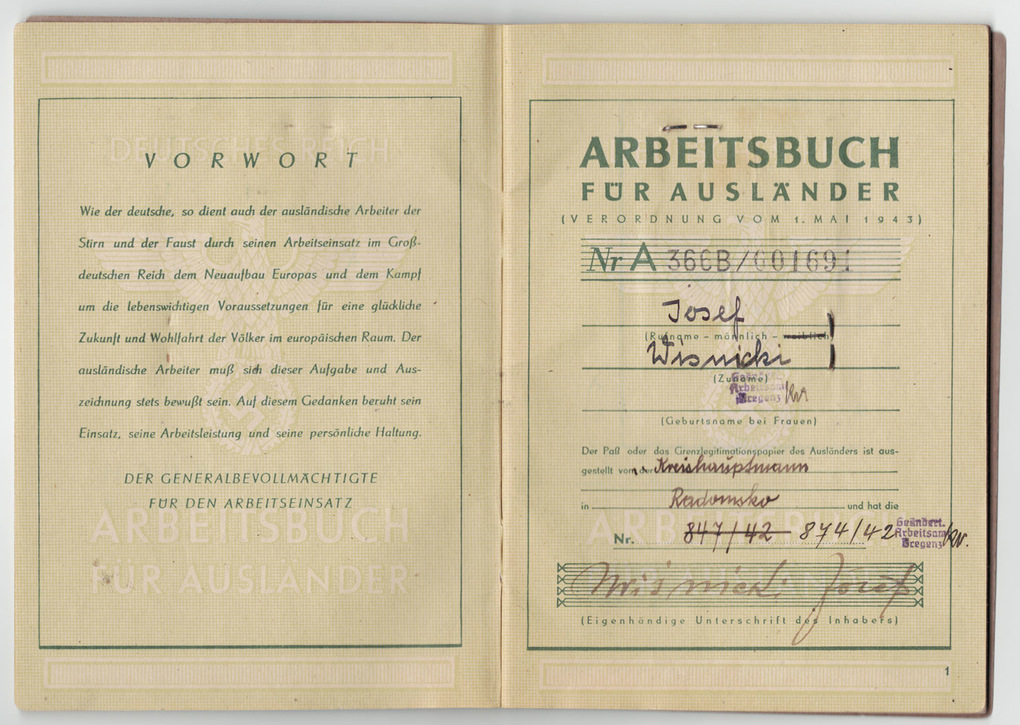 DEUTSCHES REICH
VORWORT
Wie der deutsche, so dient auch der ausländische Arbeiter der
Stirn und der Faust durch seinen Arbeitseinsatz im Groß-
deutschen Reich dem Neuaufbau Europas und dem Kampf
um die lebenswichtigen Voraussetzungen für eine glückliche
Zukunft und Wohlfahrt der Völker im europäischen Raum. Der
ausländische Arbeiter muß sich dieser Aufgabe und Aus-
zeichnung stets bewußt sein. Auf diesem Gedanken beruht sein
Einsatz, seine Arbeitsleistung und seine persönliche Haltung.
DER GENERALBEVOLLMÄCHTIGTE
FÜR DEN ARBEITSEINSATZ
ARBEITSBUCH
FÜR AUSLÄNDER
ARBEITSBUCH
FÜR AUSLÄNDER
(VERORDNUNG VOM 1. MAI 1943)
Nr A 366B/001691
Josef
(Rufname - männlich - weiblich)
Wisnicki
(Zuname)
Geändert.
Arbeitsamt
Bregenz
(Geburtsname bei Frauen)
Der Paß oder das Grenzlegitimationspapier des Ausländers ist aus-
gestellt von der Kreishauptmann
in Radomsko und hat die
Nr. 847/42 874/42
Geändert.
Arbeitsamt
Bregenz
Wisnicki Josef
(Eigenhändige Unterschrift des Inhabers)
1